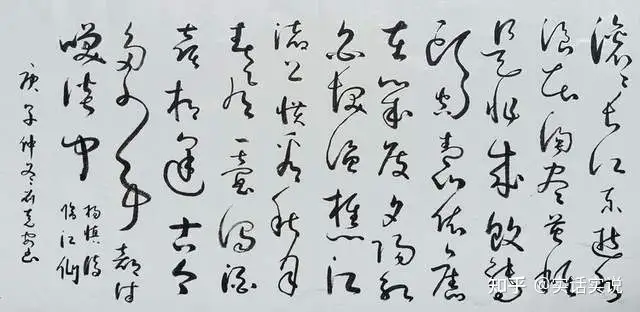 滚滚长江东逝水
浪花淘尽英雄
是非成败转
头空青山依旧
在几度夕阳红
白发渔樵江
渚上惯看秋月
春风一壶浊酒
喜相逢古今
多少事都付
笑谈中
杨慎词
临江仙
庚子仲冬
知乎 @实话实说